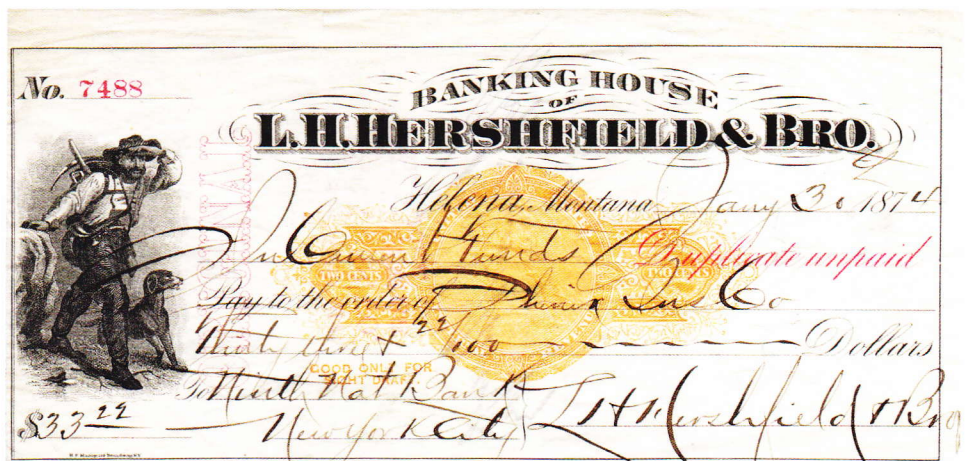 No. 7488
BANKING HOUSE
OF
L.H. HERSHFIELD & BRO.
ORIGINAL
Helena, Montana Jany 30 1874
In Current Funds Duplicate unpaid
TWO CENTS TWO CENTS
Pay to the order of Phenix Ins Co
thirty three & 22/100 Dollars
GOOD ONLY FOR
SIGHT DRAFT
To Ninth Nat Bank
$33 22 New York City L H Hershfield & Bro